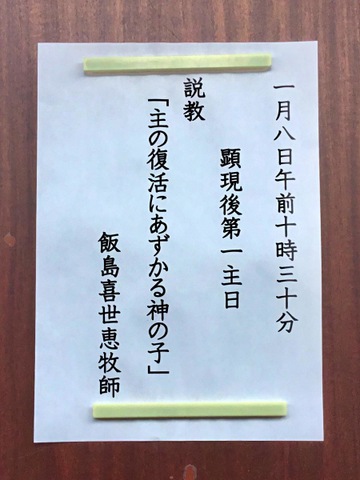 一月八日午前十時三十分
顕現後第一主日
説教
「主の復活にあずかる神の子」
飯島喜世恵牧師